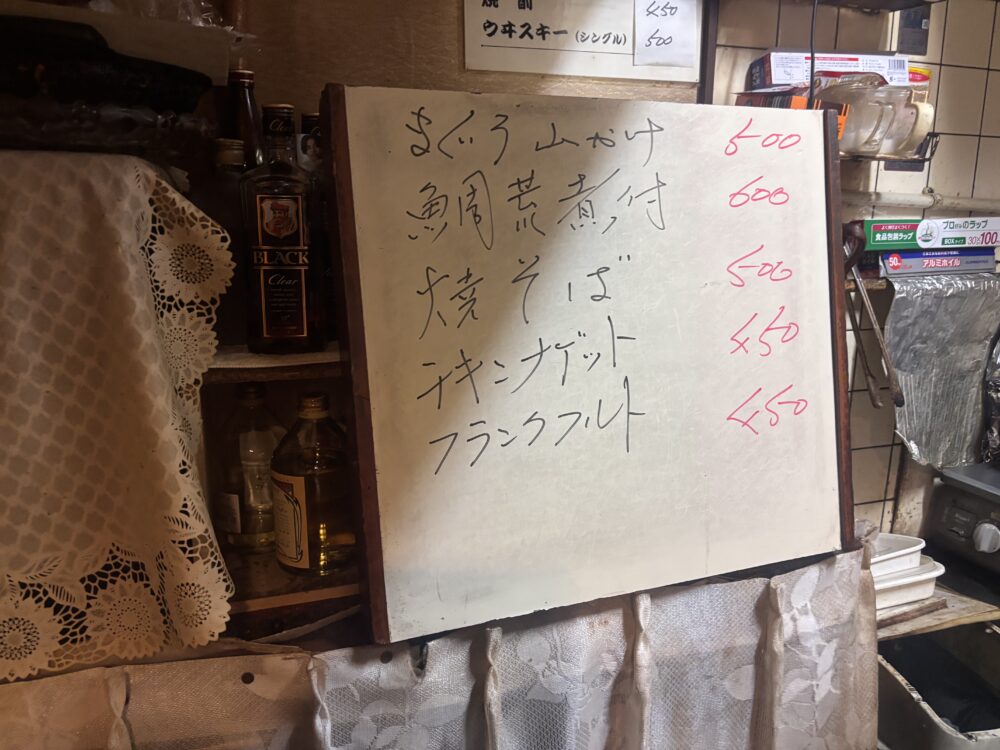 焼酎 450
ウヰスキー (シングル) 500
まぐろ山かけ 500
鯛荒煮付 600
焼そば 500
チキンナゲット 450
フランクフルト 450
BLACK
Clear
よく切れてよくつく!
食品包装ラップ
プロのラップ
BOXタイプ 30×100
50m
アルミホイル